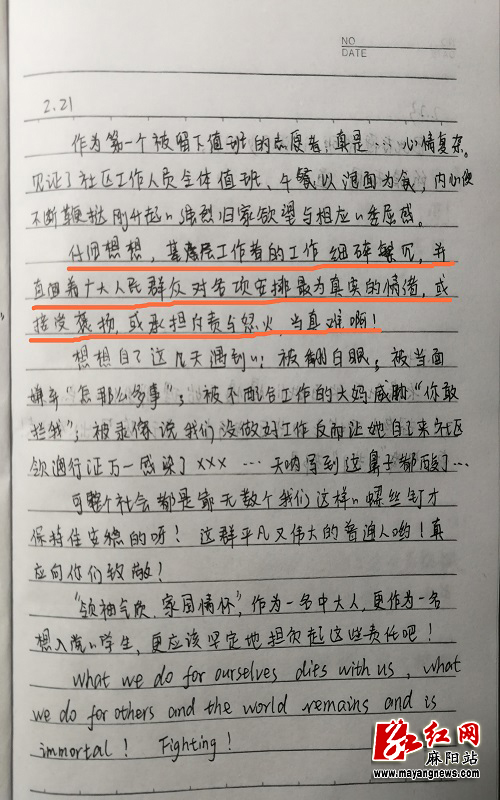 NO
DATE
2.21
作为第一个被留下值班的志愿者,真是…心情复杂。
见证了社区工作人员全体值班、午餐以泡面为食,内心便
不断鞭挞刚升起的强烈归家欲望与相应的委屈感。
仔细想想,基层工作者的工作细碎繁冗,并
直面着广大人民群众对各项安排最为真实的情绪,或
接受褒扬,或承担指责与怒火,当真难啊!
想想自己这几天遇到的:被翻白眼;被当面
嫌弃“怎那么多事”;被不配合工作的大妈威胁“你敢
拦我”;被录像说我们没做好工作反而让她自己来社区
领通行证万一感染了××× …天呐写到这鼻子都酸了…
可整个社会都是靠无数个我们这样的螺丝钉才
保持住安稳的呀!这群平凡又伟大的普通人哟!真
应向你们致敬!
“领袖气质,家国情怀”,作为一名中大人,更作为一名
想入党的学生,更应该坚定地担负起这些责任吧!
What we do for ourselves dies with us, what
we do for others and the world remains and is
immortal! Fighting!
红网
麻阳站
www.mayangnews.com